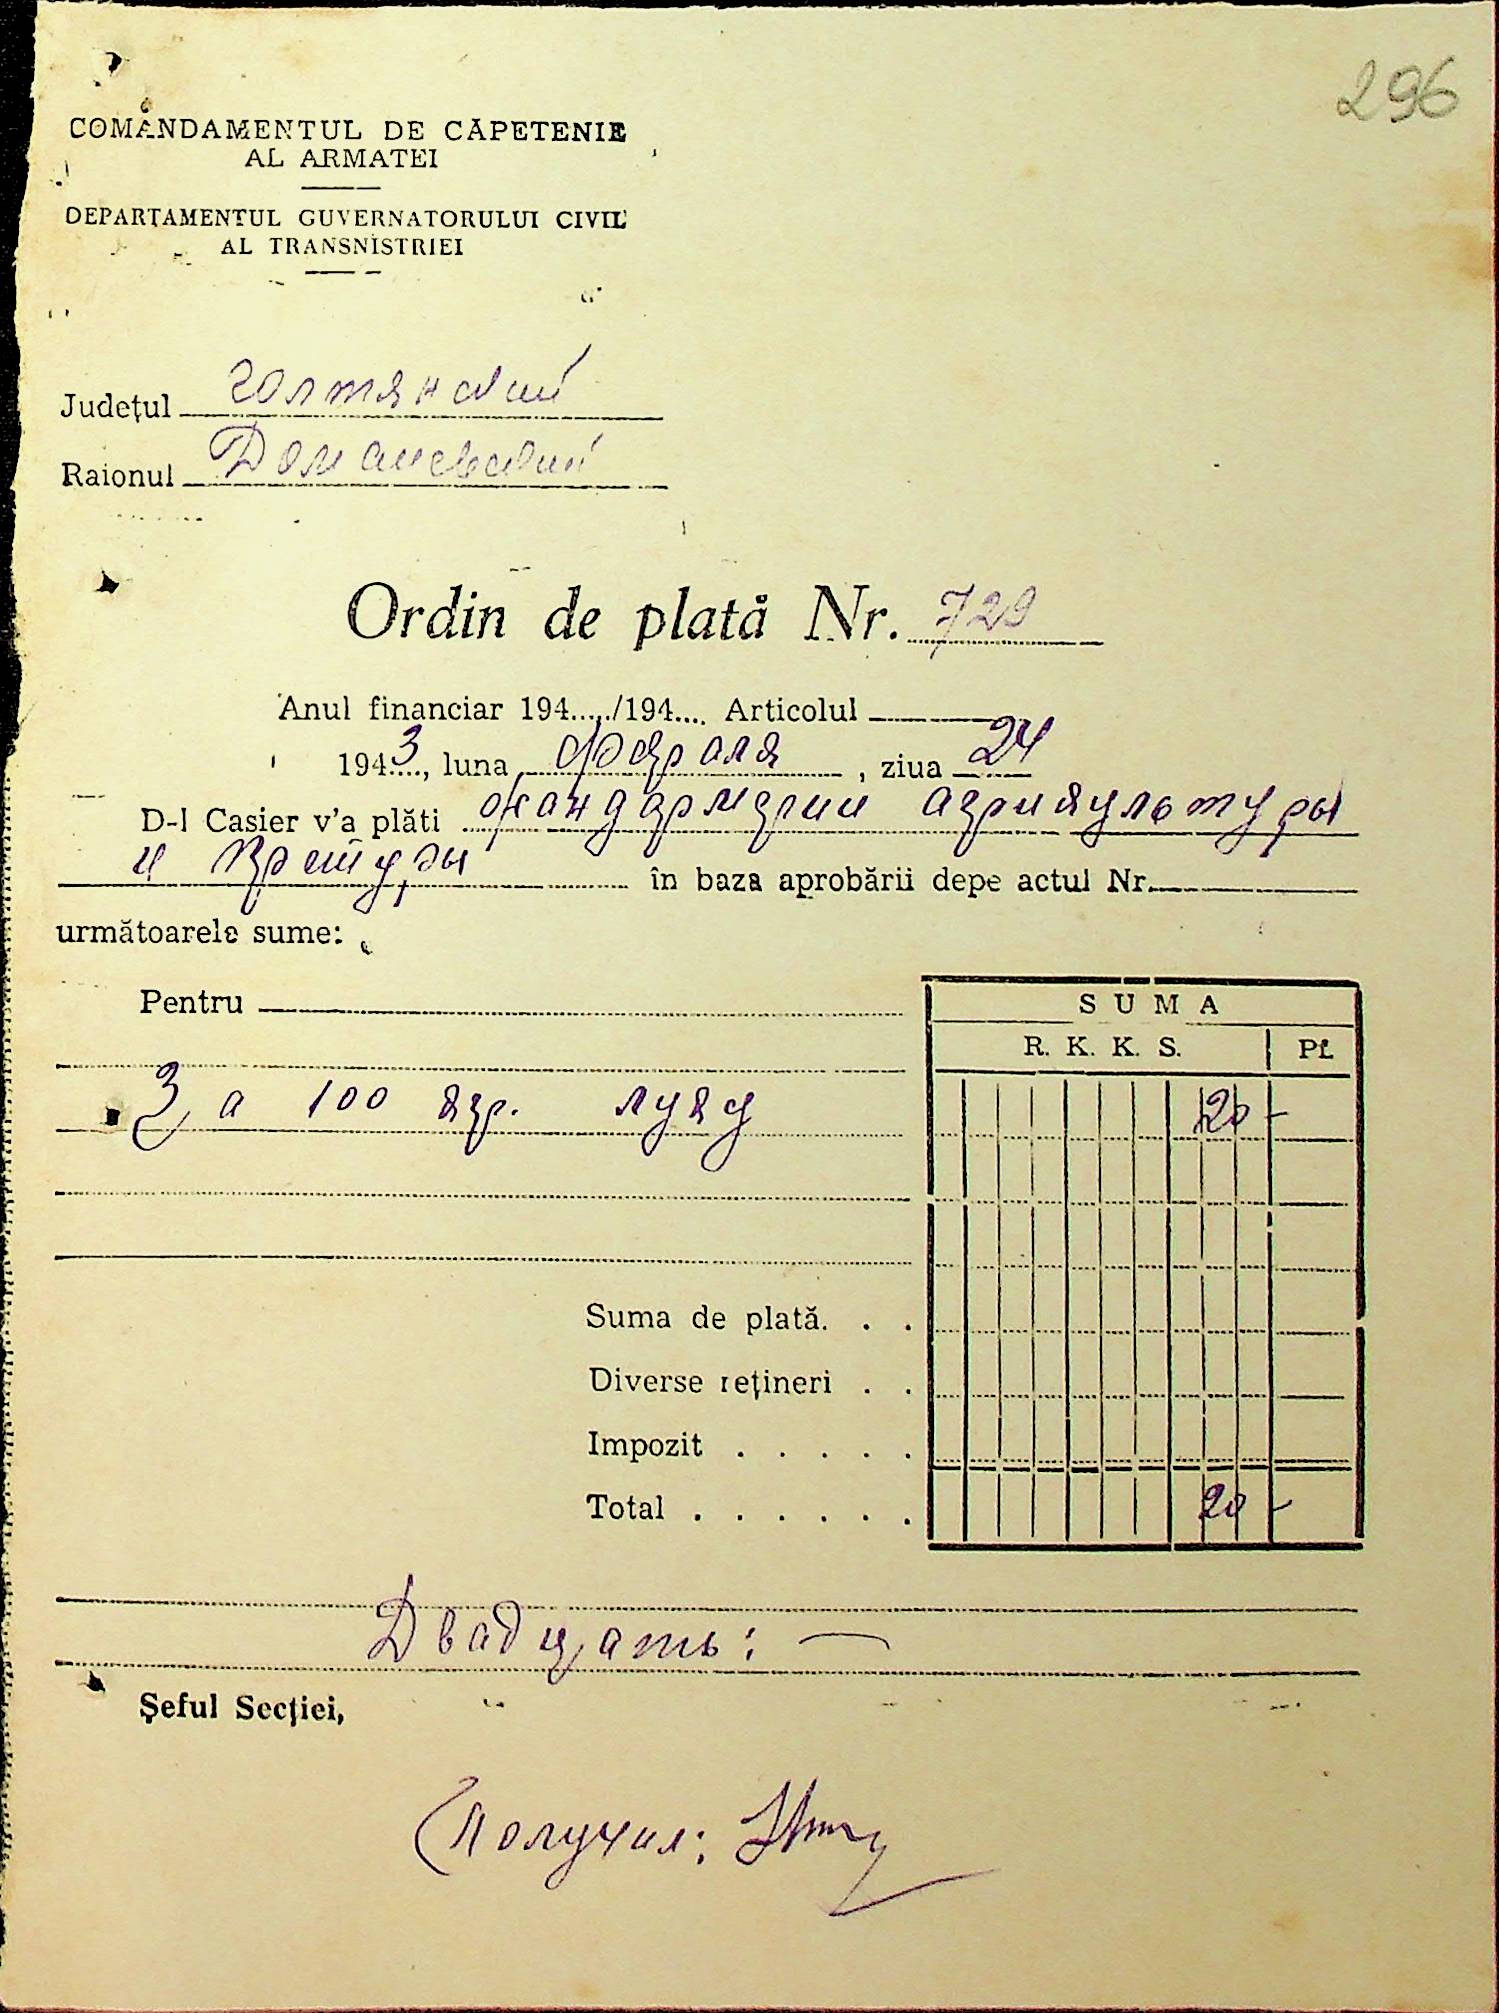 296
COMANDAMENTUL DE CĂPETENIE
AL ARMATEI
DEPARTAMENTUL GUVERNATORULUI CIVIL
AL TRANSNISTRIEI
Județul Голтянский
Raionul Доманевский
Ordin de plată Nr. 729
Anul financiar 194...../194.... Articolul
1943, luna февраля, ziua 24
D-l Casier v'a plăti жандармерии агрикультуры
и претуры în baza aprobării depe actul Nr.
următoarele sume:
Pentru
SUMA
R. K. K. S. Pf.
За 100 кгр. луку 20 -
Suma de plată. . .
Diverse rețineri . .
Impozit . . . . .
Total . . . . . . 20 -
Двадцать: —
Șeful Secției,
Получил: